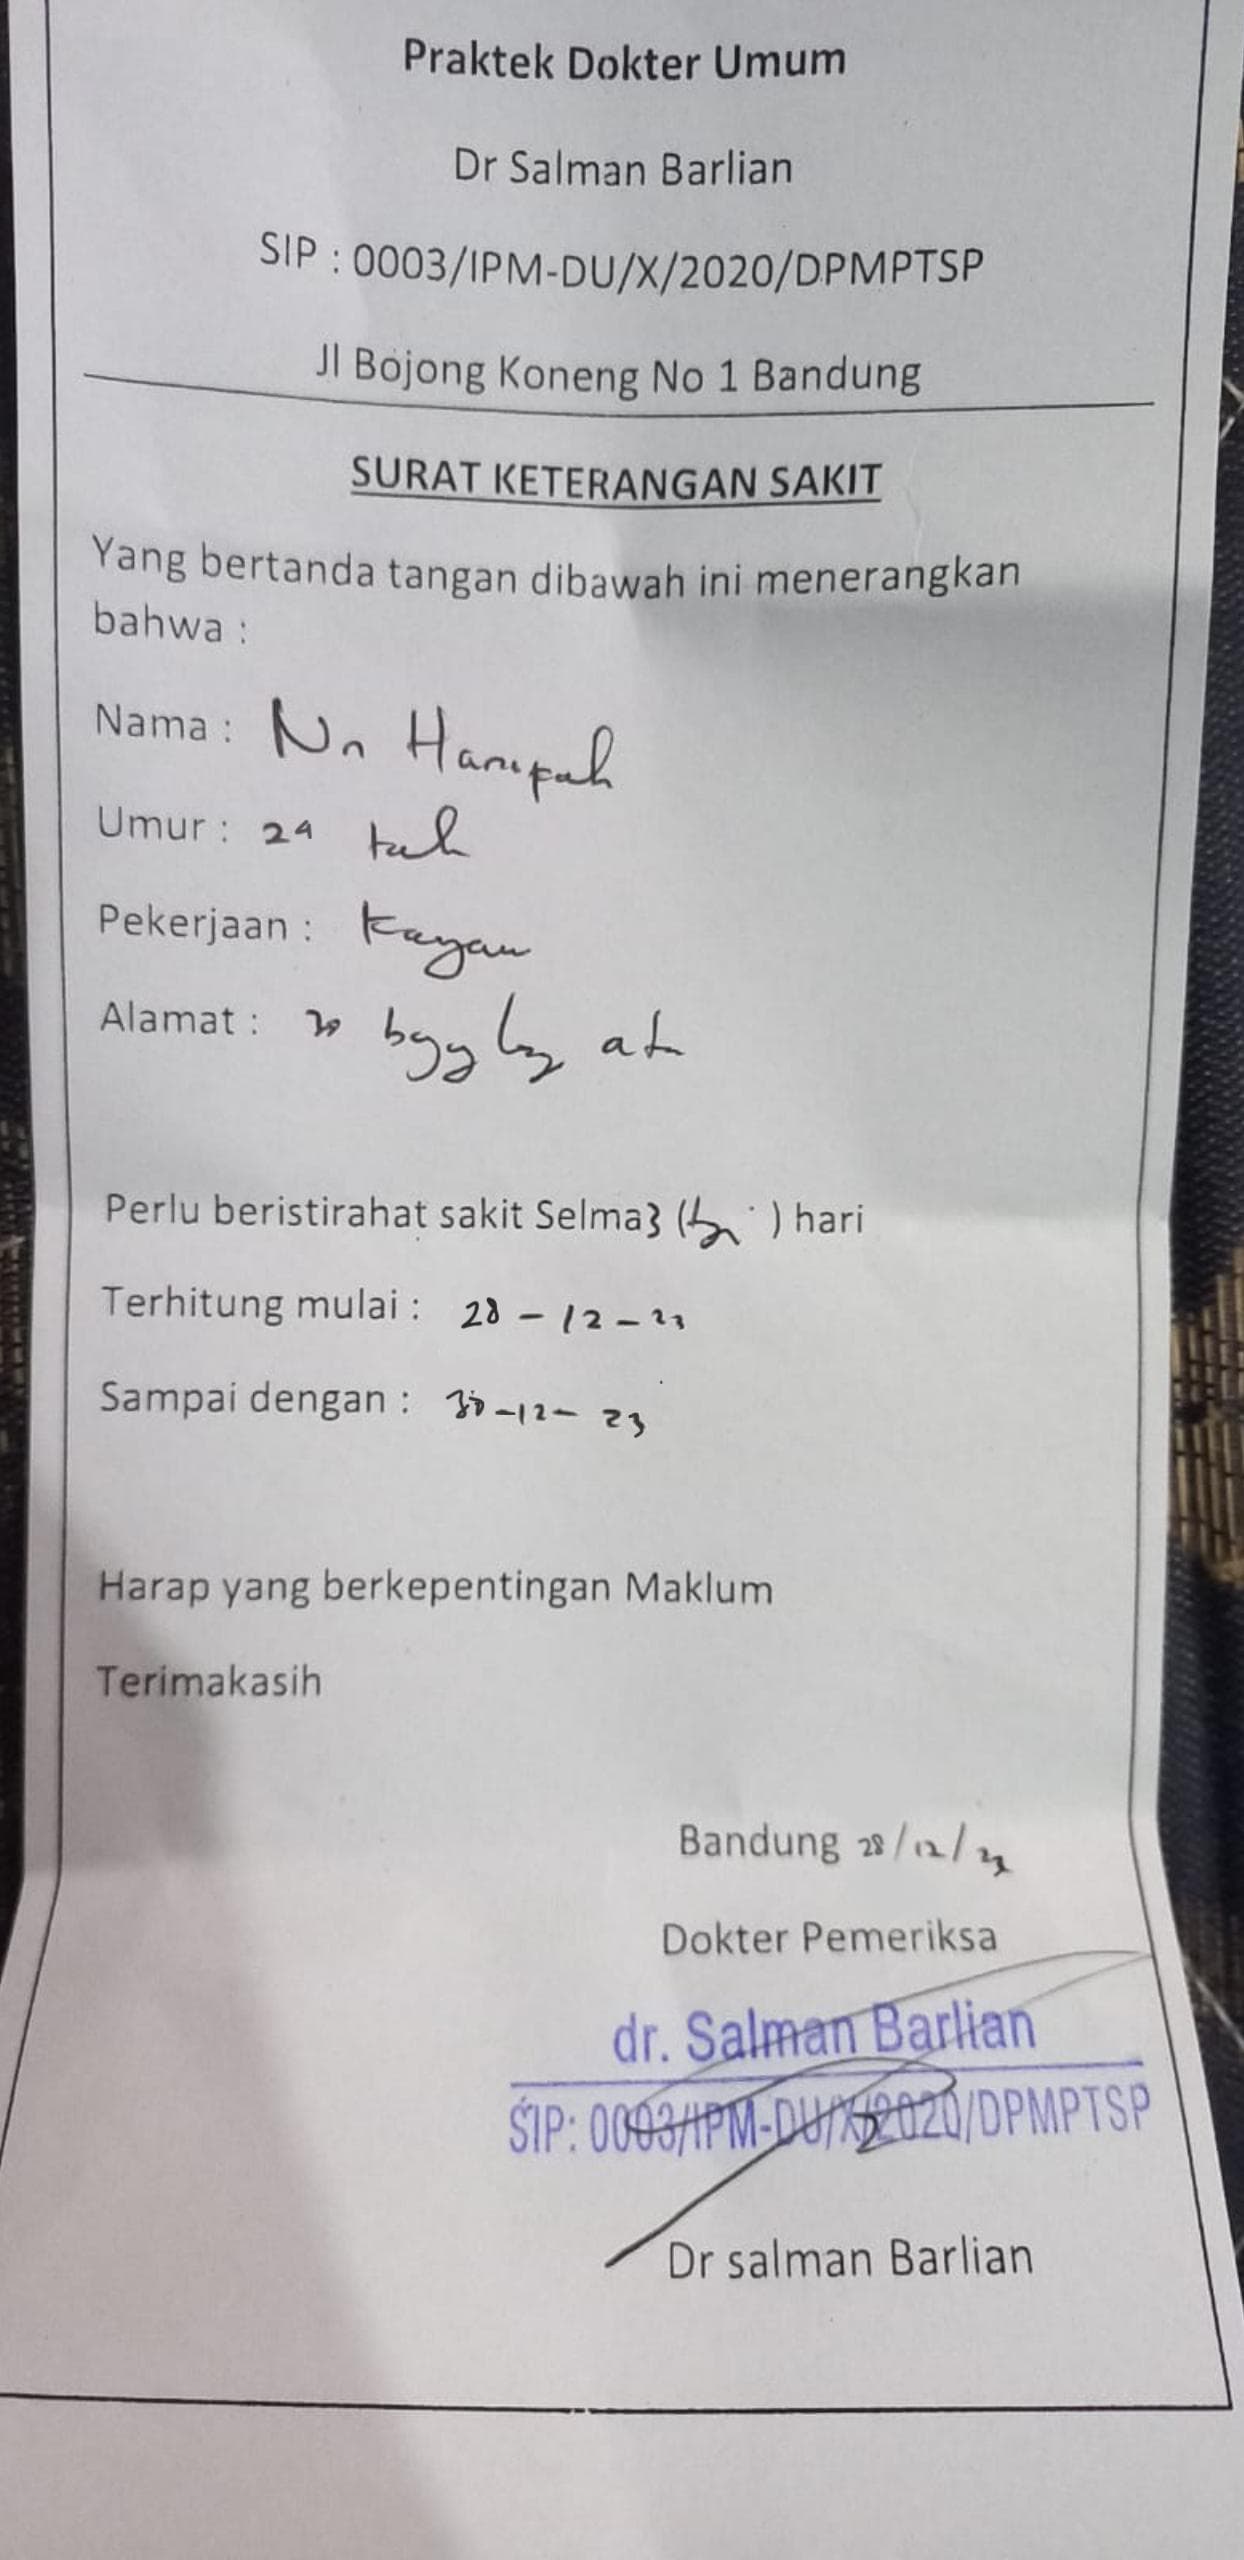 Praktek Dokter Umum
Dr Salman Barlian
SIP : 0003/IPM-DU/X/2020/DPMPTSP
Jl Bojong Koneng No 1 Bandung
SURAT KETERANGAN SAKIT
Yang bertanda tangan dibawah ini menerangkan
bahwa :
Nama : Nn Hanipah
Umur : 24 tah
Pekerjaan :
Alamat :
Perlu beristirahat sakit Selma3 ( ) hari
Terhitung mulai : 28 - 12 - 23
Sampai dengan : 30 -12- 23
Harap yang berkepentingan Maklum
Terimakasih
Bandung 28/12/23
Dokter Pemeriksa
dr. Salman Barlian
SIP: 0003/IPM-DU/X/2020/DPMPTSP
Dr salman Barlian